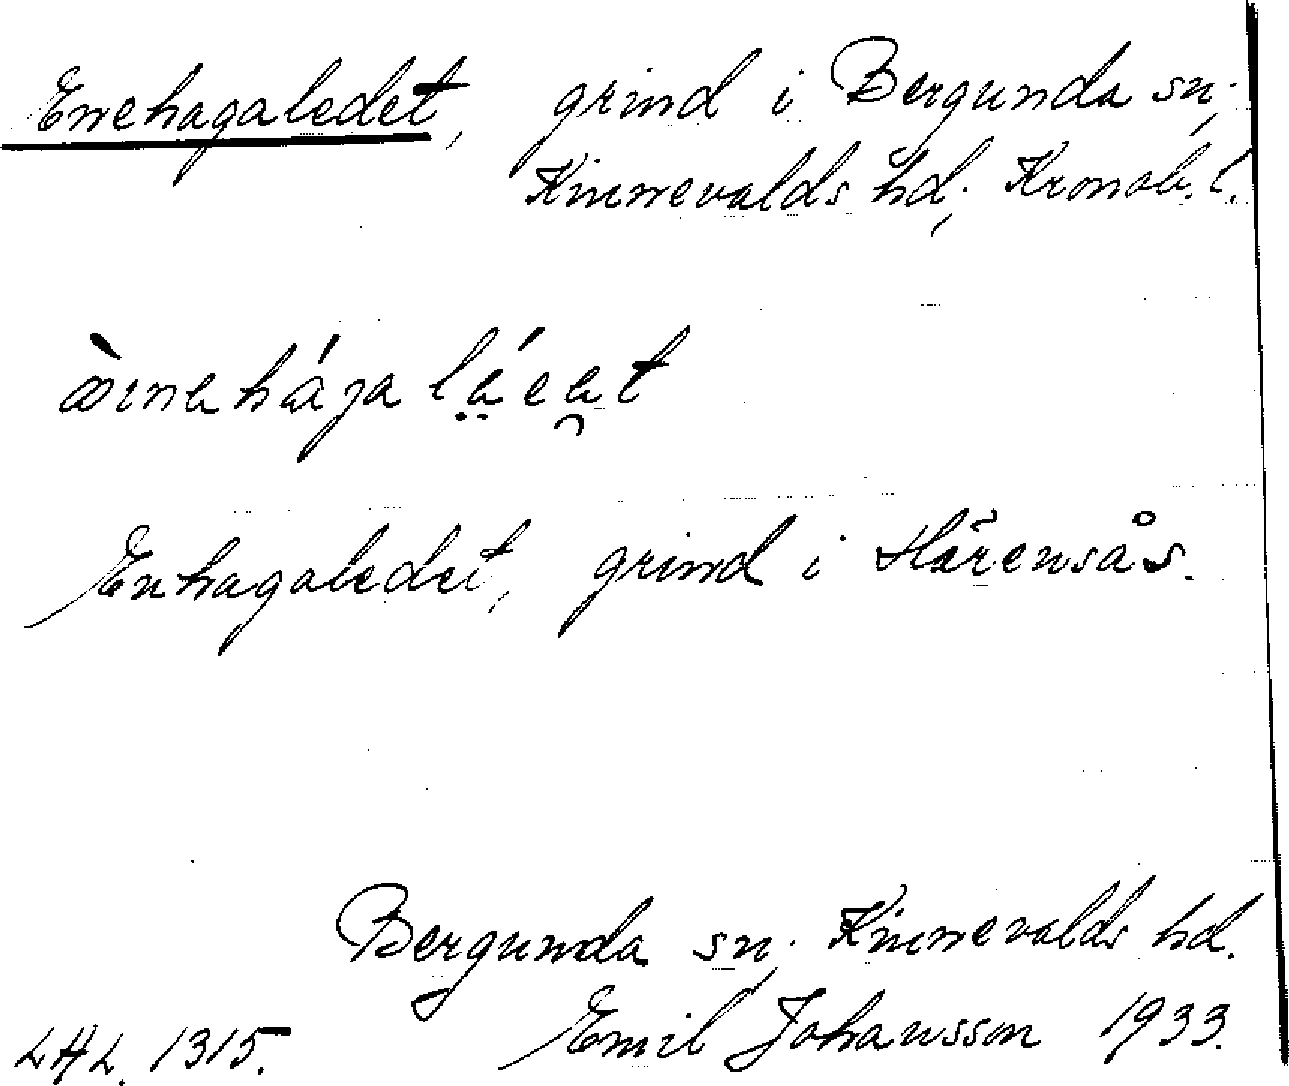 Enehagaledet, grind i Bergunda sn,
Kinnevalds hd, Kronob. l.
Enhagaledet, grind i Härensås.
Bergunda sn, Kinnevalds hd.
LAL. 1315. Emil Johansson 1933.